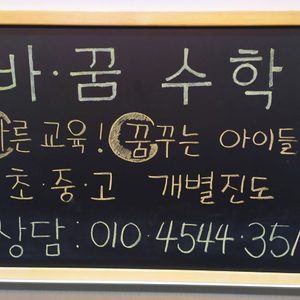 바·꿈 수학
바른교육! 꿈꾸는 아이들
초·중·고 개별진도
상담: 010·4544·35